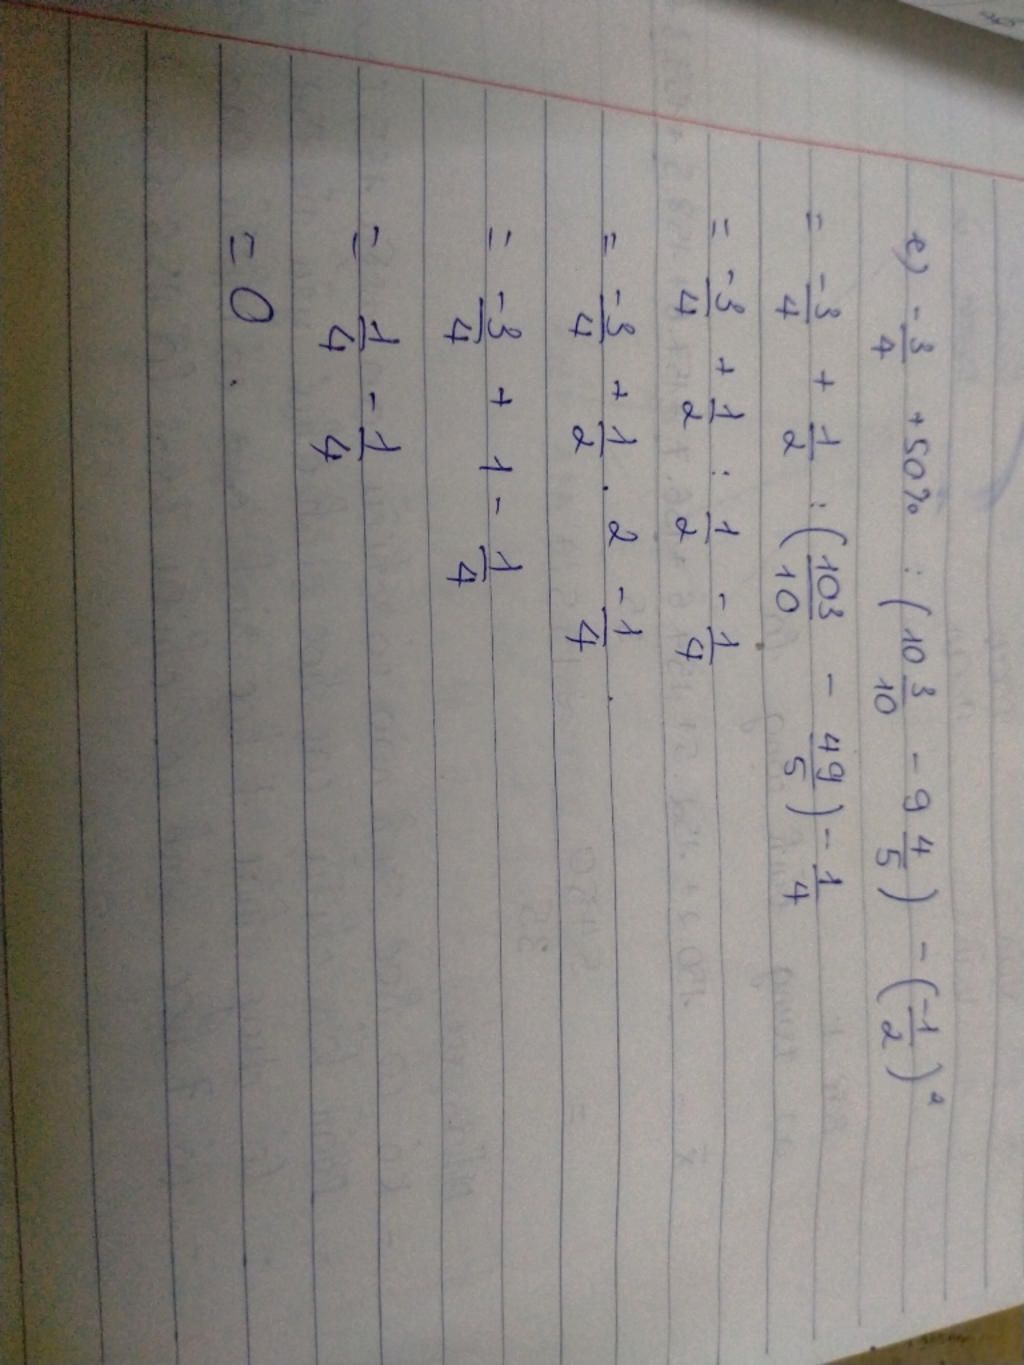 e) -3/4 + 50% : (10 3/10 - 9 4/5) - (-1/2)²
= -3/4 + 1/2 : (103/10 - 49/5) - 1/4
= -3/4 + 1/2 : 1/2 - 1/4
= -3/4 + 1/2 . 2 - 1/4
= -3/4 + 1 - 1/4
= 1/4 - 1/4
= 0.